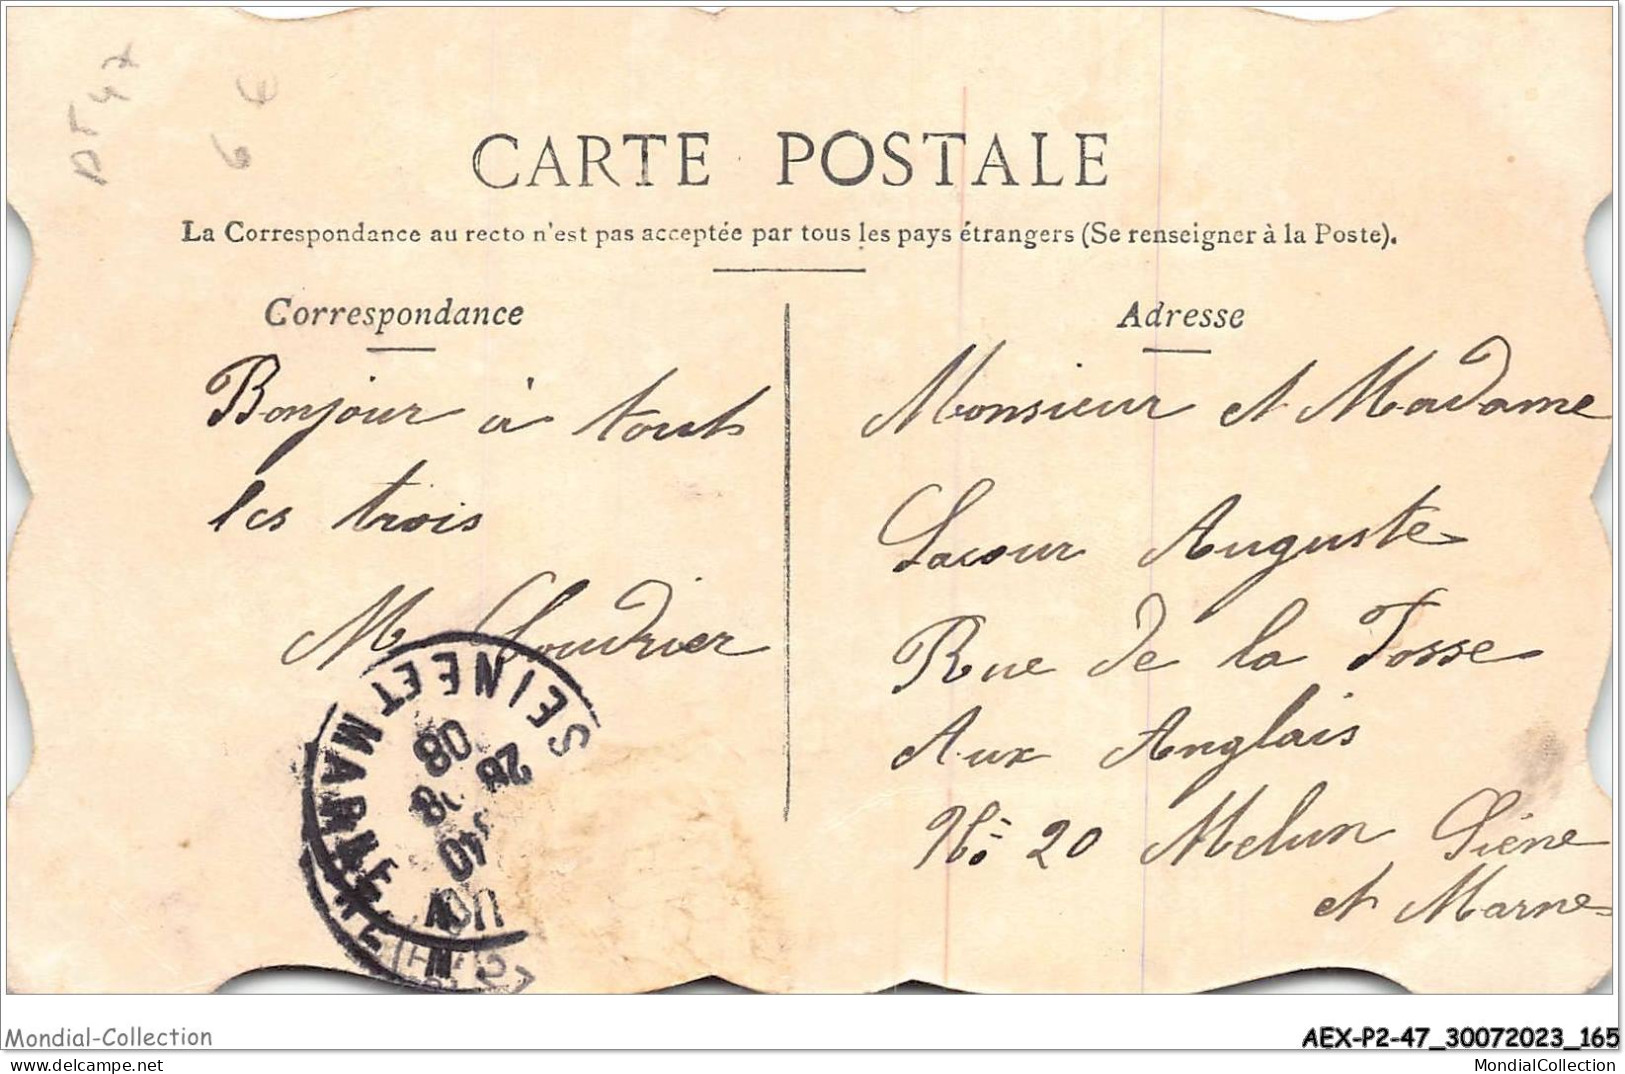 DT 47
6 €
CARTE POSTALE
La Correspondance au recto n'est pas acceptée par tous les pays étrangers (Se renseigner à la Poste).
Correspondance
Bonjour à touts
les trois
M Loudrier
SEINE ET MARNE
28
08
40
Adresse
Monsieur et Madame
Lacour Auguste
Rue de la Fosse
Aux Anglais
No 20 Melun Siéne
et Marne
Mondial-Collection
AEX-P2-47_30072023_165
delcampe.net
MondialCollection